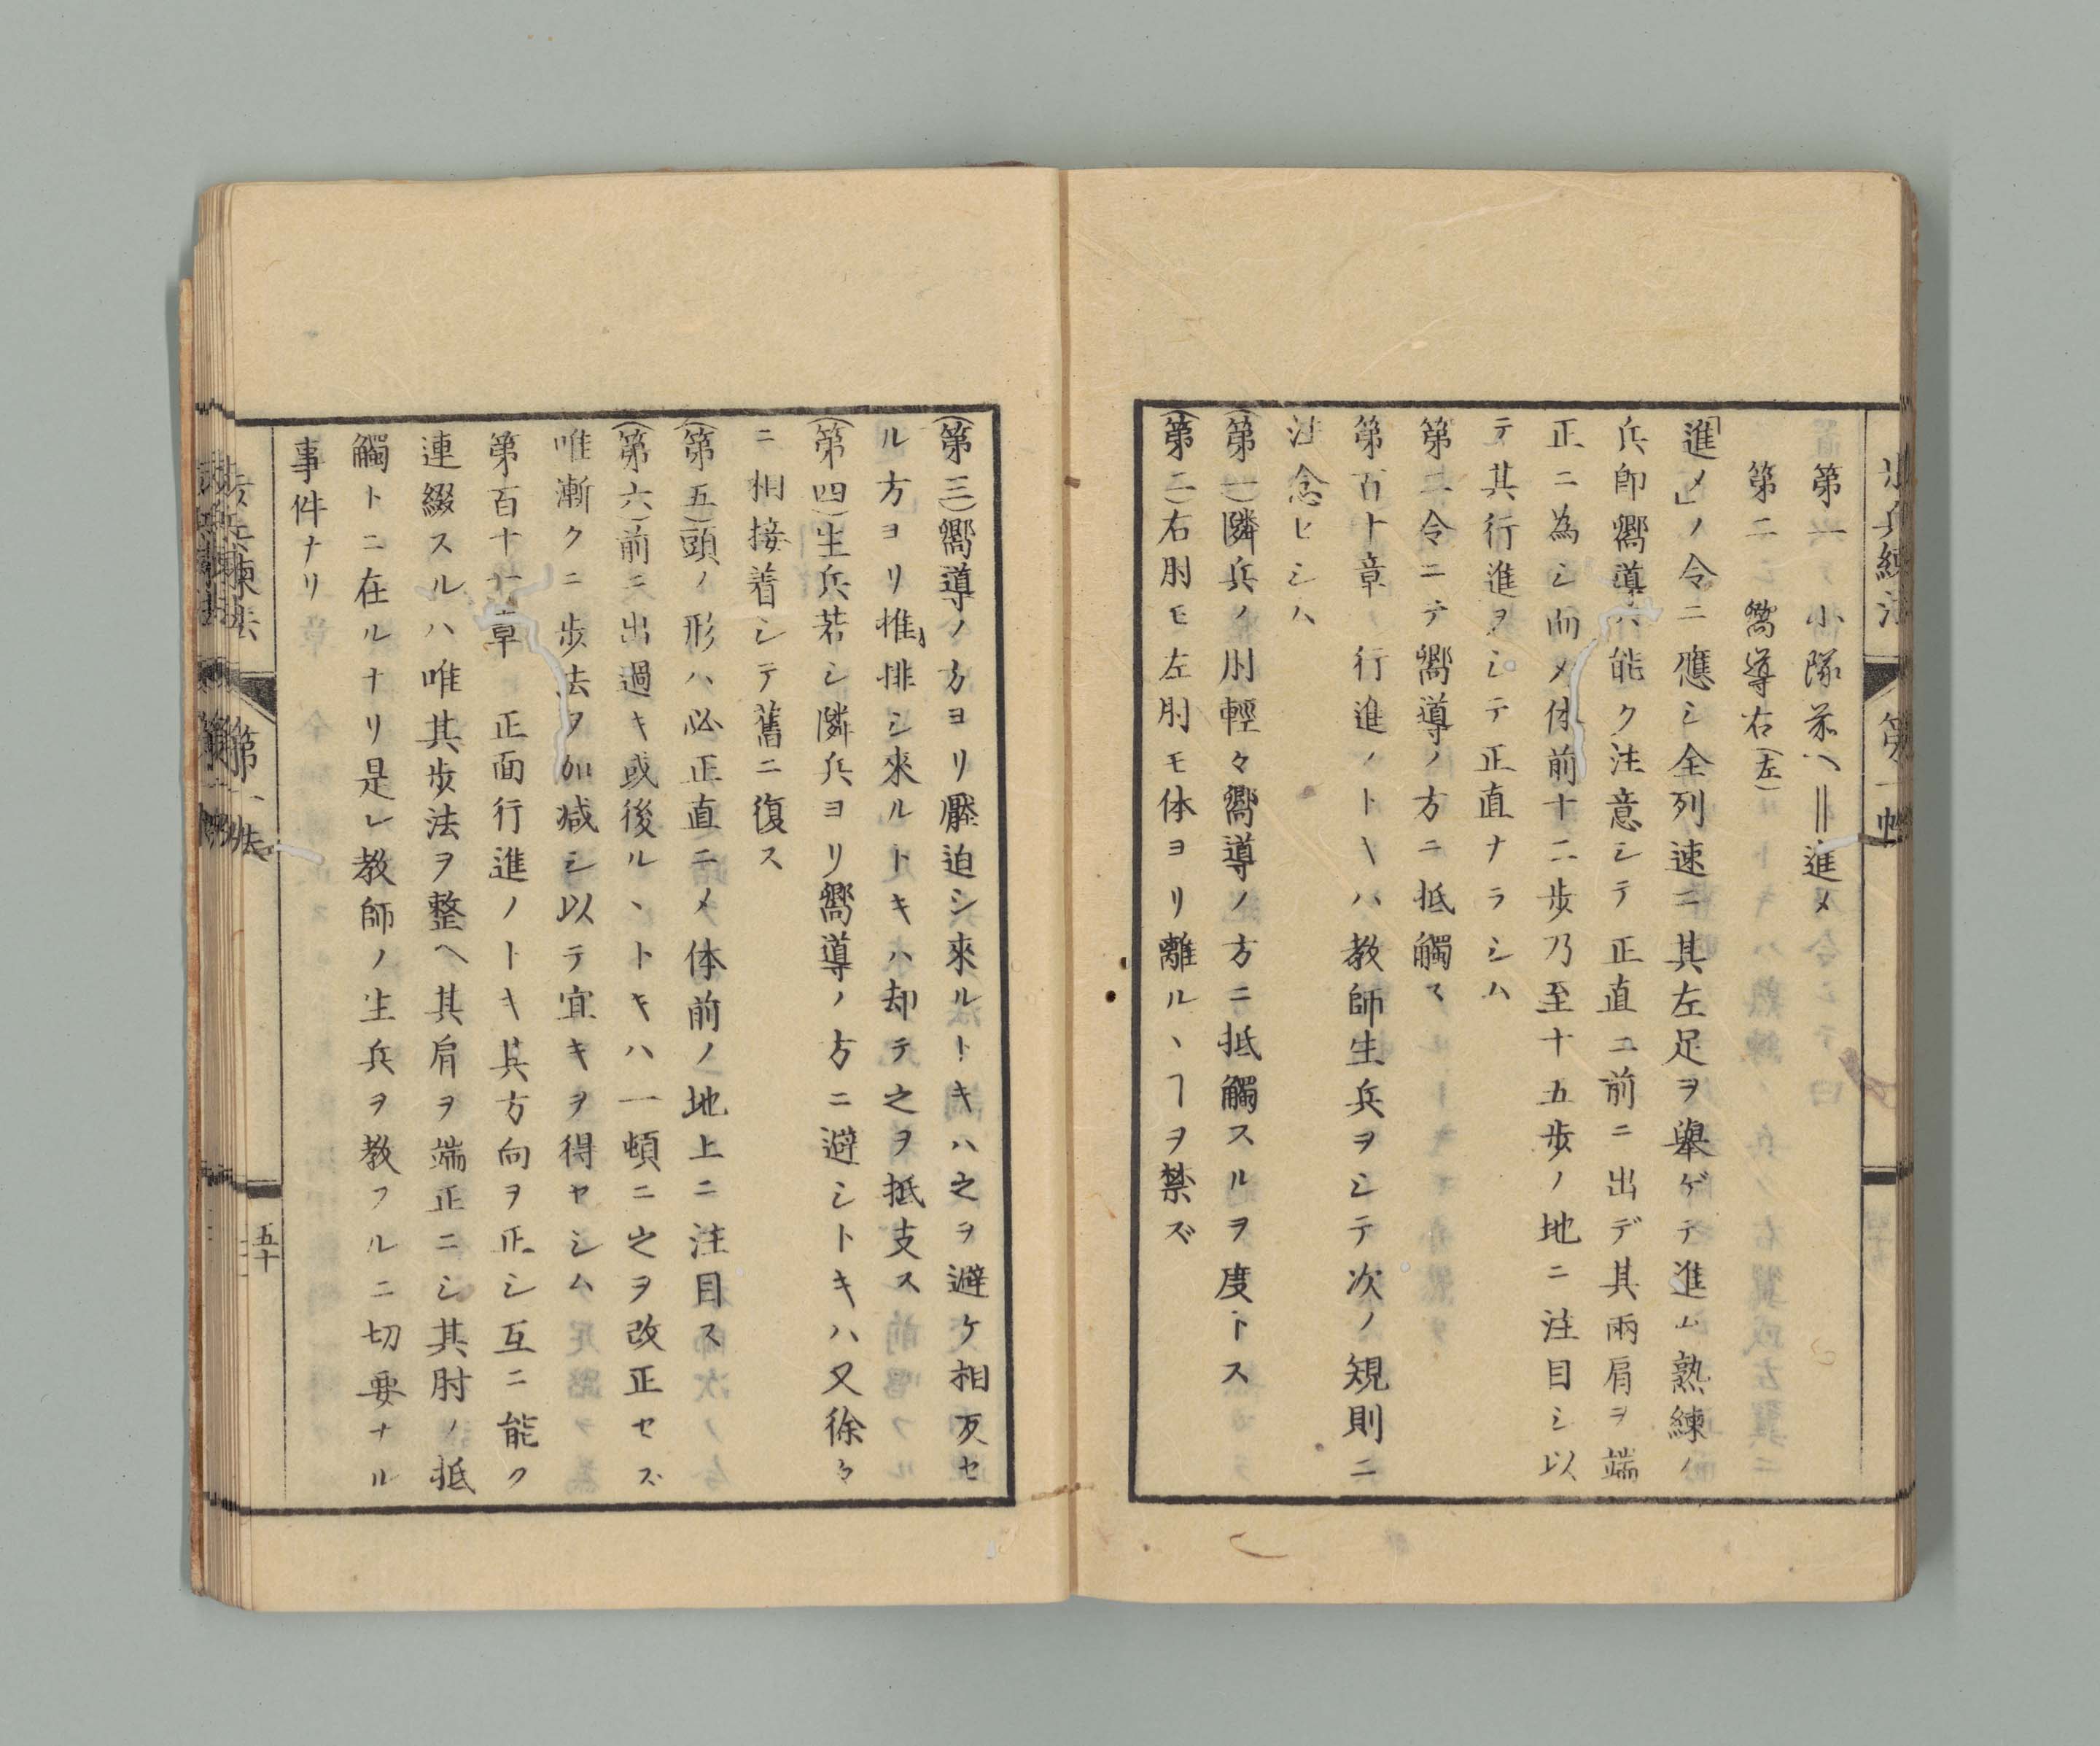 歩兵練法 第一帙
第一 小隊前ヘ＝進メ
第二 嚮導右(左)
「進メ」ノ令ニ應シ全列速ニ其左足ヲ舉ゲテ進ム熟練ノ
兵即嚮導ハ能ク注意シテ正直ニ前ニ出デ其兩肩ヲ端
正ニ為シ而メ体前十二歩乃至十五歩ノ地ニ注目シ以
テ其行進ヲシテ正直ナラシム
第二令ニテ嚮導ノ方ニ抵觸ス
第百十章 行進ノトキハ教師生兵ヲシテ次ノ規則ニ
注念セシム
(第一)隣兵ノ肘輕々嚮導ノ方ニ抵觸スルヲ度トス
(第二)右肘モ左肘モ体ヨリ離ルヽヿヲ禁ズ
(第三)嚮導ノ方ヨリ壓迫シ來ルトキハ之ヲ避ケ相反セ
ル方ヨリ推排シ來ルトキハ却テ之ヲ抵支ス
(第四)生兵若シ隣兵ヨリ嚮導ノ方ニ避シトキハ又徐々
ニ相接着シテ舊ニ復ス
(第五)頭ノ形ハ必正直ニメ体前ノ地上ニ注目ス
(第六)前ニ出過キ或後ルヽトキハ一頓ニ之ヲ改正セズ
唯漸クニ歩法ヲ加減シ以テ宜キヲ得セシム
第百十一章 正面行進ノトキ其方向ヲ正シ互ニ能ク
連綴スルハ唯其歩法ヲ整ヘ其肩ヲ端正ニシ其肘ノ抵
觸トニ在ルナリ是レ教師ノ生兵ヲ教フルニ切要ナル
事件ナリ
五十